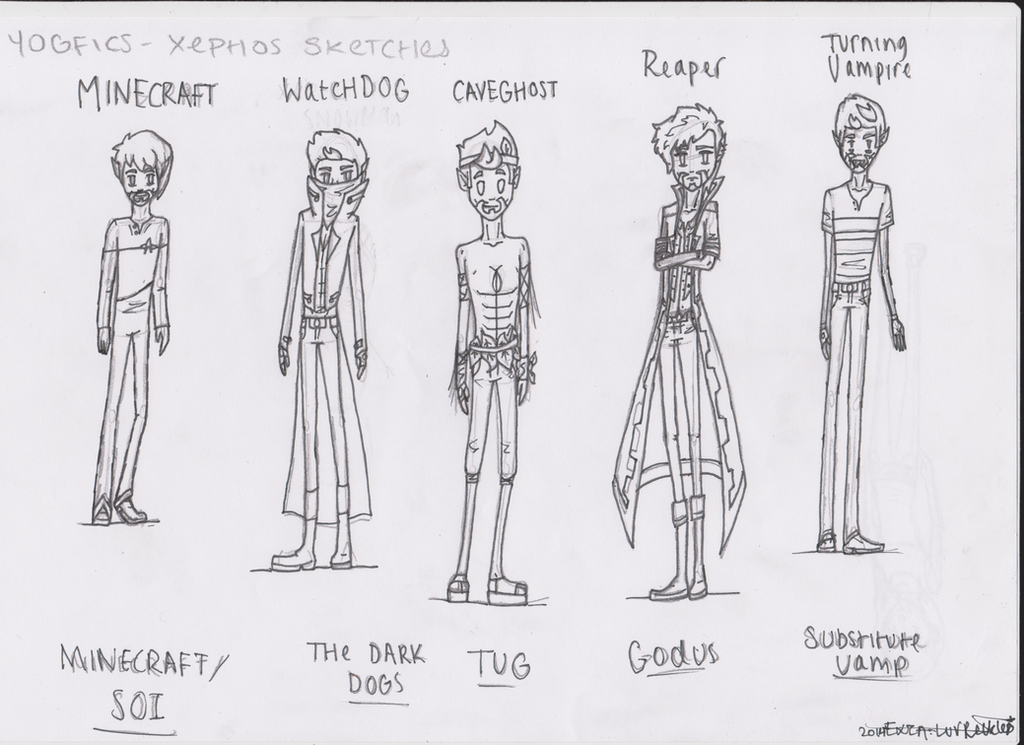 YOGFICS - XEPHOS SKETCHES
MINECRAFT
WATCHDOG
CAVEGHOST
Reaper
Turning
Vampire
MINECRAFT/
SOI
THE DARK
DOGS
TUG
Godus
Substitute
Vamp
2014